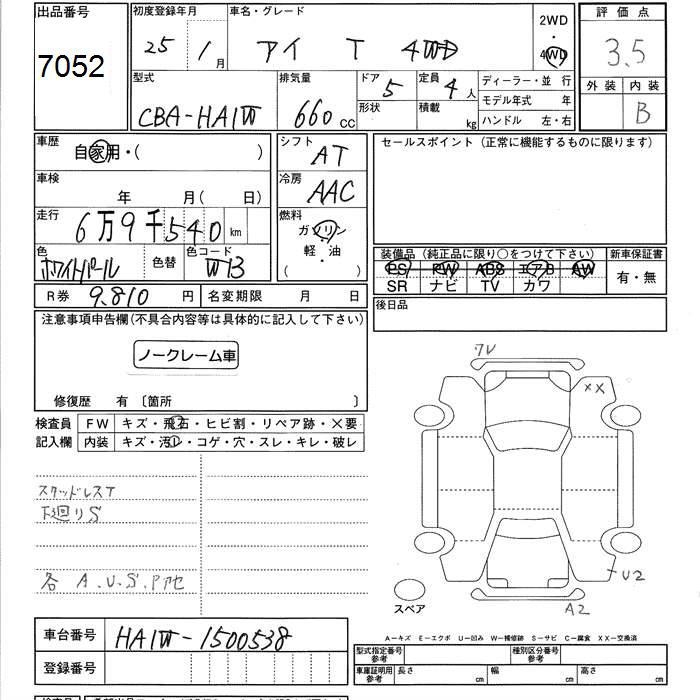 出品番号
7052
初度登録年月
25年 1月
車名・グレード
アイ T 4WD
2WD
・
4WD
評価点
3.5
外装 内装
B
型式
CBA-HA1W
排気量
660 cc
ドア
5
形状
定員
4人
積載
kg
ディーラー・並 行
モデル年式 年
ハンドル 左・右
車歴
自家用・( )
シフト
AT
セールスポイント (正常に機能するものに限ります)
車検
年 月( 日)
冷房
AAC
走行
6万9千540km
燃料
ガソリン
軽・油
( )
色
ホワイトパール
色替
色コード
W13
装備品 (純正品に限り○をつけて下さい)
PS PW ABS エアB AW
SR ナビ TV カワ
新車保証書
有・無
R券 9.810 円
名変期限 月 日
後日品
注意事項申告欄(不具合内容等は具体的に記入して下さい)
ノークレーム車
修復歴 有 〔箇所 〕
検査員
記入欄
FW キズ・飛石・ヒビ割・リペア跡・×要
内装 キズ・汚レ・コゲ・穴・スレ・キレ・破レ
スタッドレスT
下廻りS
各 A.U.S.Pアセ
7レ
XX
U2
A2
スペア
車台番号 HA1W-1500538
登録番号
A-キズ E-エクボ U-凹み W-補修跡 S-サビ C-腐食 XX-交換済
型式指定番号
参考
種別区分番号
参考
車庫証明用
参考
長さ cm 幅 cm 高さ cm